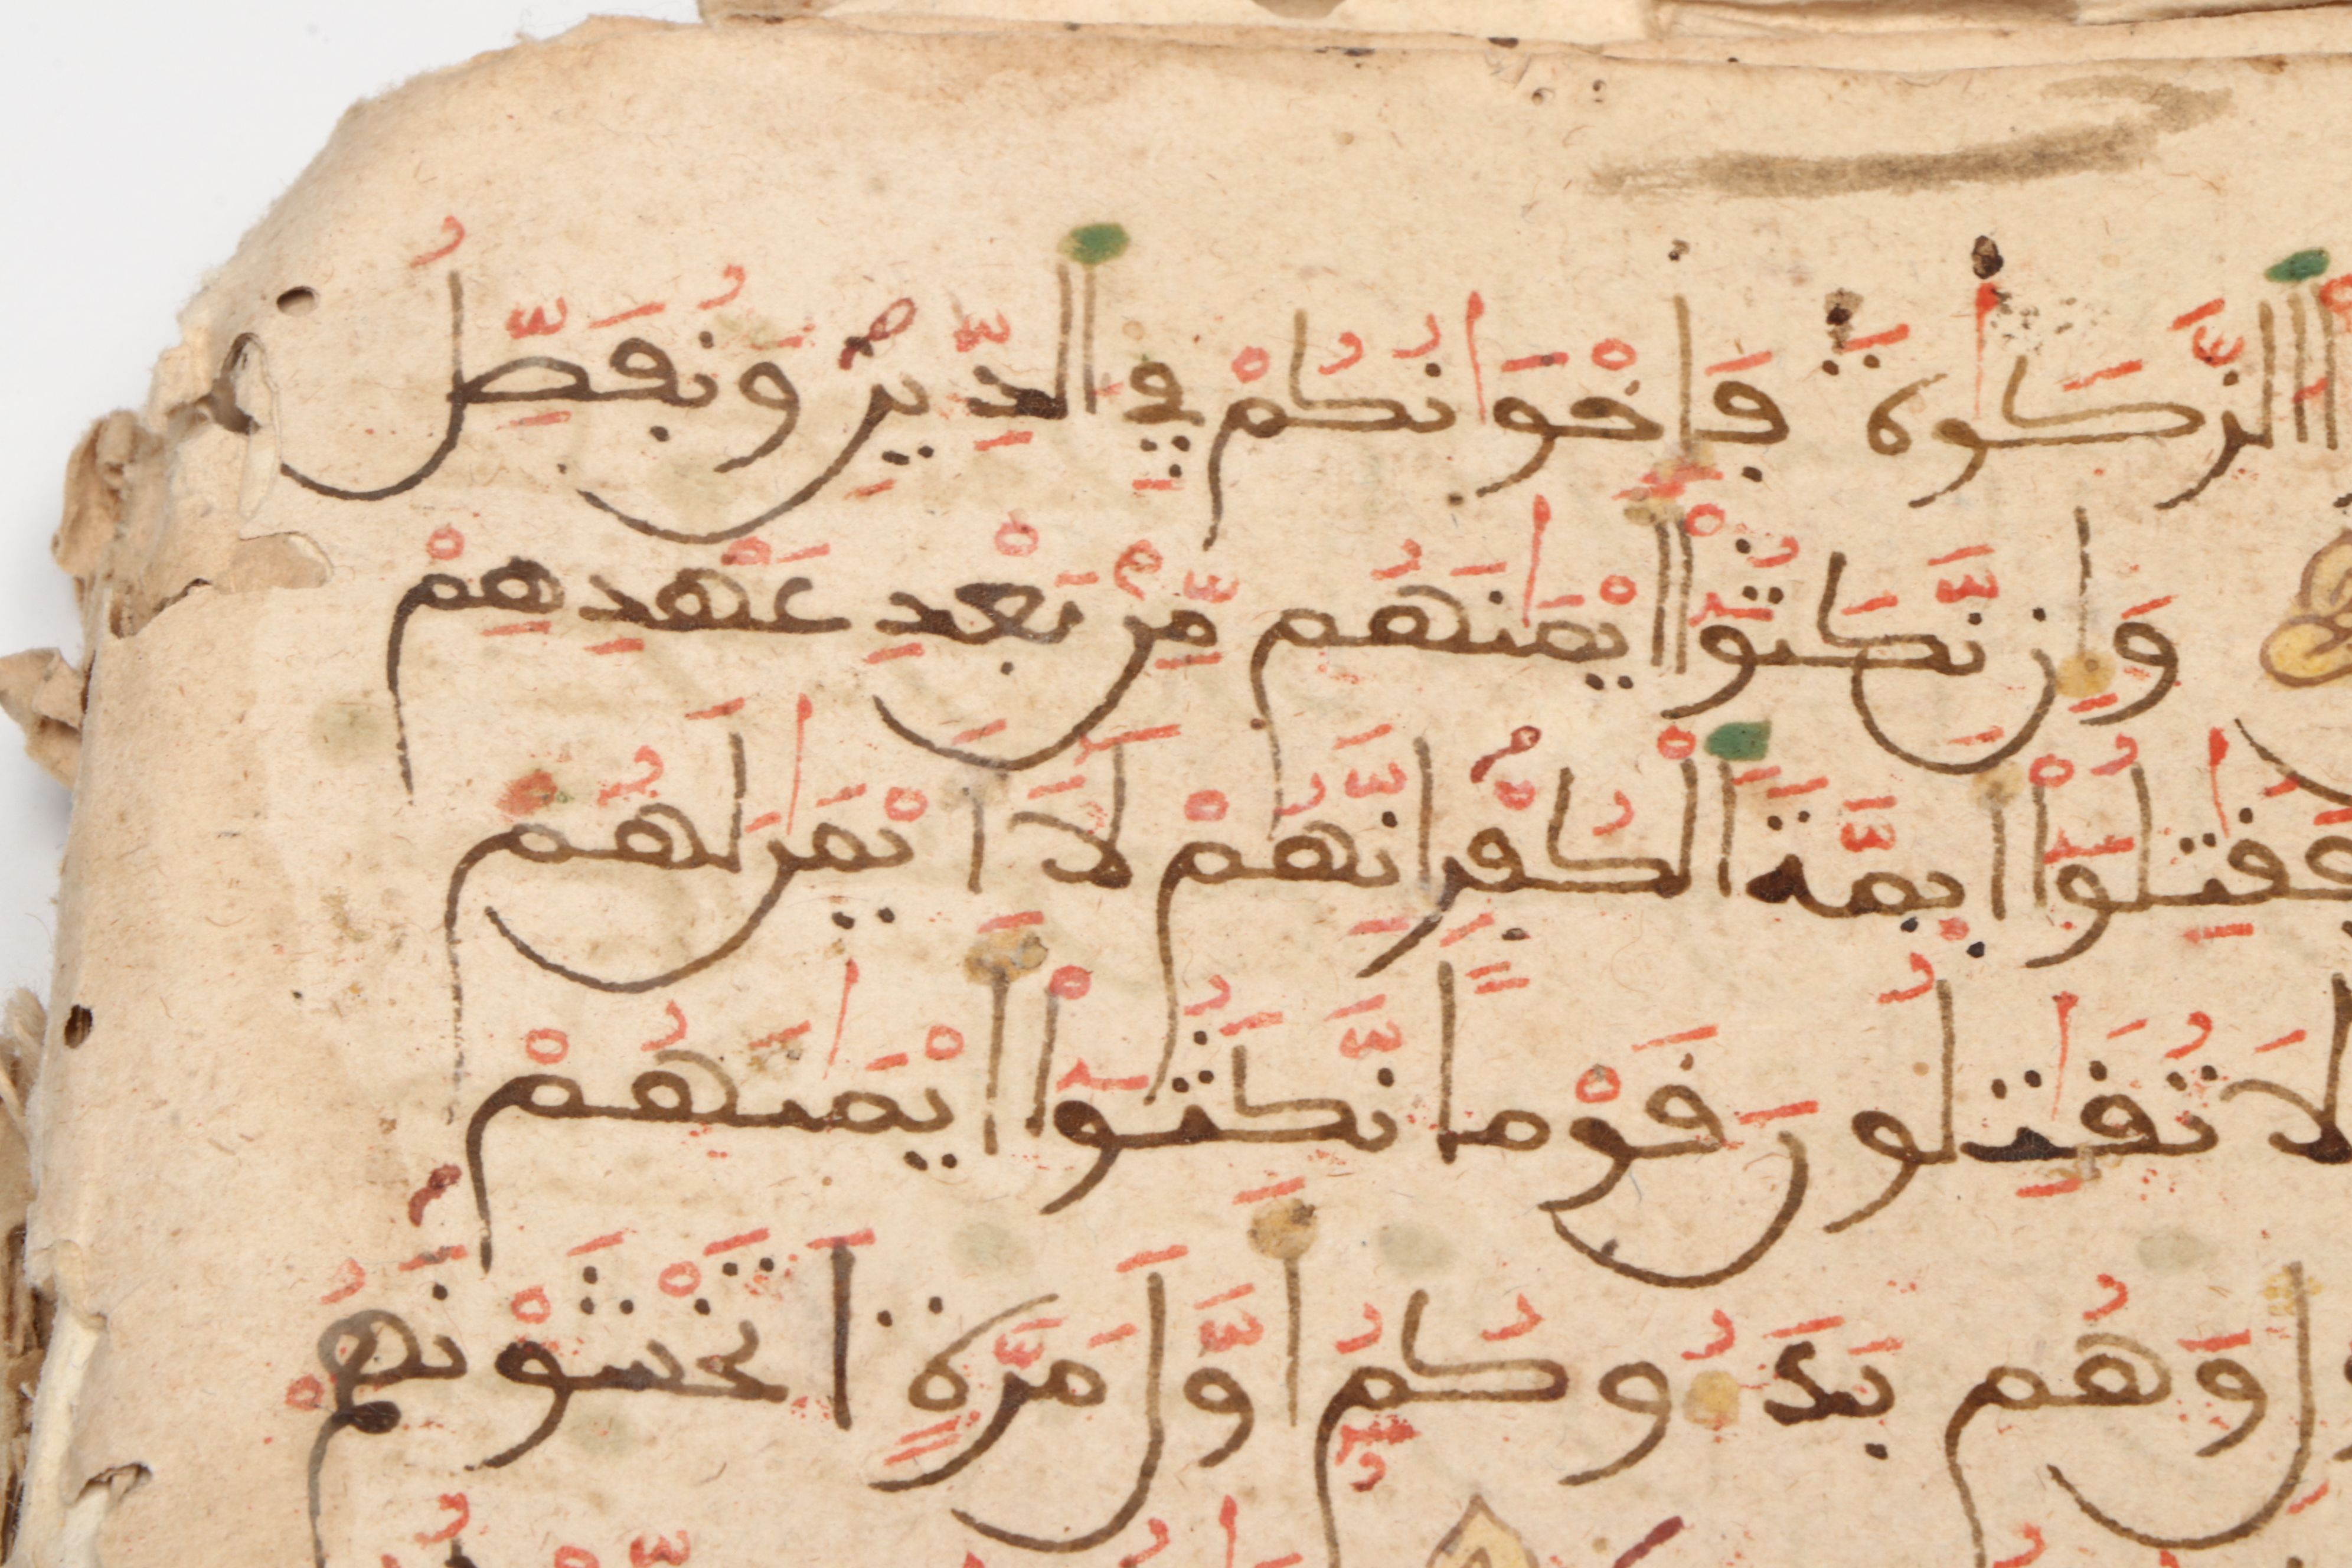 الزَّكَوٰةَ فَإِخْوَٰنُكُمْ فِے الدِّينِ وَنُفَصِّلُ
وَإِن نَّكَثُوٓاْ أَيْمَٰنَهُم مِّنۢ بَعْدِ عَهْدِهِمْ
فَقَٰتِلُوٓاْ أَيِمَّةَ اَ۬لْكُفْرِ إِنَّهُمْ لَآ أَيْمَٰنَ لَهُمْ
لَا تُقَٰتِلُونَ قَوْماً نَّكَثُوٓاْ أَيْمَٰنَهُمْ
وَهُم بَدَءُوكُمُۥٓ أَوَّلَ مَرَّةٍ اَتَخْشَوْنَهُمْ